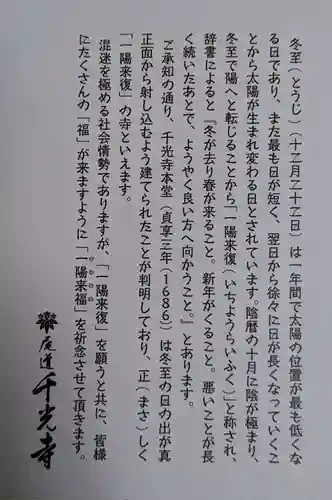 冬至（とうじ）（十二月二十二日）は一年間で太陽の位置が最も低くな
る日であり、また最も日が短く、翌日から徐々に日が長くなっていくこ
とから太陽が生まれ変わる日とされています。陰暦の十月に陰が極まり、
冬至で陽へと転じることから「一陽来復（いちようらいふく）」と称され、
辞書によると『冬が去り春が来ること。新年がくること。悪いことが長
く続いたあとで、ようやく良い方へ向かうこと。』とあります。
ご承知の通り、千光寺本堂（貞享三年（1686））は冬至の日の出が真
正面から射し込むよう建てられたことが判明しており、正（まさ）しく
「一陽来復」の寺といえます。
混迷を極める社会情勢でありますが、「一陽来復」を願うと共に、皆様
にたくさんの「福」が来ますように「一陽来福」を祈念させて頂きます。
尾道千光寺